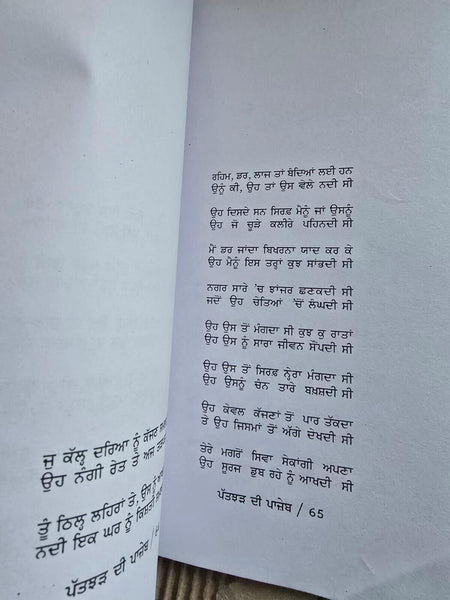 ਜੁ ਕੱਲ੍ਹ ਦਰਿਆ ਨੂੰ ਕੱਜਣ
ਉਹ ਨੰਗੀ ਰੇਤ ਤੇ ਅਜ
ਤੂੰ ਠਿਲ੍ਹ ਲਹਿਰਾਂ ਤੇ, ਉਸ ਨੂੰ
ਨਦੀ ਇਕ ਘਰ ਨੂੰ ਕਿਸ਼ਤੀ
ਪੱਤਝੜ ਦੀ ਪਾਜ਼ੇਬ /
ਰਹਿਮ, ਡਰ, ਲਾਜ ਤਾਂ ਬੰਦਿਆਂ ਲਈ ਹਨ
ਉਨੂੰ ਕੀ, ਉਹ ਤਾਂ ਉਸ ਵੇਲੇ ਨਦੀ ਸੀ
ਉਹ ਦਿਸਦੇ ਸਨ ਸਿਰਫ਼ ਮੈਨੂੰ ਜਾਂ ਉਸਨੂੰ
ਉਹ ਜੋ ਚੂੜੇ ਕਲੀਰੇ ਪਹਿਨਦੀ ਸੀ
ਮੈਂ ਡਰ ਜਾਂਦਾ ਬਿਖਰਨਾ ਯਾਦ ਕਰ ਕੇ
ਉਹ ਮੈਨੂੰ ਇਸ ਤਰ੍ਹਾਂ ਕੁਝ ਸਾਂਭਦੀ ਸੀ
ਨਗਰ ਸਾਰੇ 'ਚ ਝਾਂਜਰ ਛਣਕਦੀ ਸੀ
ਜਦੋਂ ਉਹ ਚੇਤਿਆਂ 'ਚੋਂ ਲੰਘਦੀ ਸੀ
ਉਹ ਉਸ ਤੋਂ ਮੰਗਦਾ ਸੀ ਕੁਝ ਕੁ ਰਾਤਾਂ
ਉਹ ਉਸ ਨੂੰ ਸਾਰਾ ਜੀਵਨ ਸੌਂਪਦੀ ਸੀ
ਉਹ ਉਸ ਤੋਂ ਸਿਰਫ਼ ਨ੍ਹੇਰਾ ਮੰਗਦਾ ਸੀ
ਉਹ ਉਸਨੂੰ ਚੰਨ ਤਾਰੇ ਬਖ਼ਸ਼ਦੀ ਸੀ
ਉਹ ਕੇਵਲ ਕੱਜਣਾਂ ਤੋਂ ਪਾਰ ਤੱਕਦਾ
ਤੇ ਉਹ ਜਿਸਮਾਂ ਤੋਂ ਅੱਗੇ ਦੇਖਦੀ ਸੀ
ਤੇਰੇ ਮਗਰੋਂ ਸਿਵਾ ਸੇਕਾਂਗੀ ਅਪਣਾ
ਉਹ ਸੂਰਜ ਡੁਬ ਰਹੇ ਨੂੰ ਆਖਦੀ ਸੀ
ਪੱਤਝੜ ਦੀ ਪਾਜ਼ੇਬ / 65